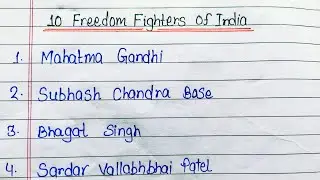 10 Freedom Fighters Of India
1. Mahatma Gandhi
2. Subhash Chandra Base
3. Bhagat Singh
4. Sardar Vallabhbhai Patel